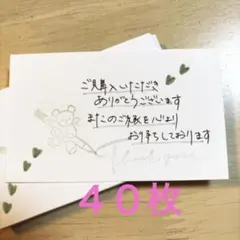 ご購入いただき
ありがとうございます
またのご縁を心より
お待ちしております
Thank you
４０枚